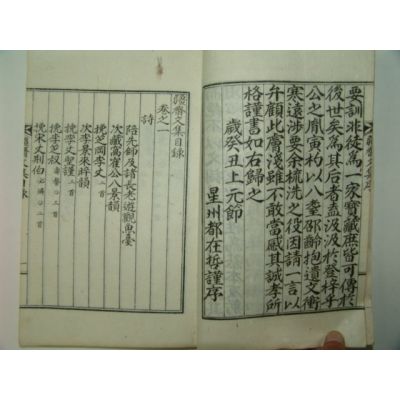 要訓非徒爲一家寶藏庶皆可傳於
後世矣爲其后者盍汲汲於登梓乎
公之胤寅杓以八耋邵齡抱遺文衝
寒遠涉要余梳洗之役因請一言以
弁顧此膚淺雖不敢當感其誠孝所
格謹書如右歸之
歲癸丑上元節
星州都在哲謹序
齋文集目錄
卷之一
詩
陪先師及諸長老遊觀魚臺
次藏窩崔公八景韻
挽竺岡李丈
次李景來晬韻
挽李丈聖謹二首
挽李芝叔
挽宋丈剛伯